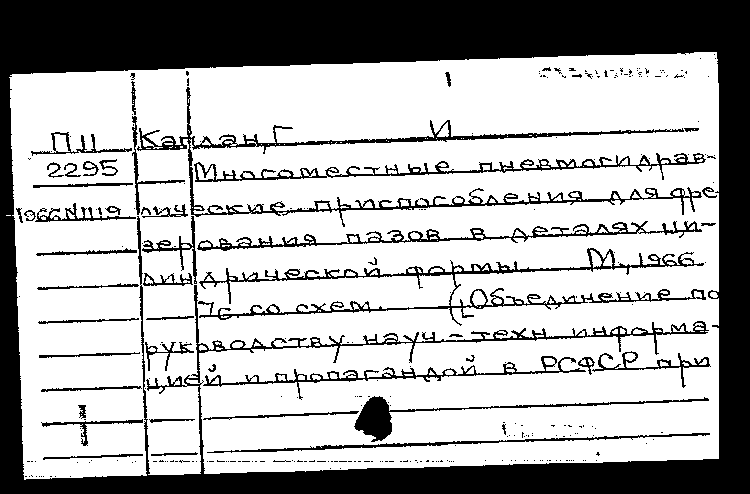 П II Каплан, Г И
2295 Многоместные пневмогидрав-
1966 N1119 лические приспособления для фре
зерования пазов в деталях ци-
линдрической формы М., 1966
7с со схем. (Объединение по
руководству науч-техн информа-
цией и пропагандой в РСФСР при